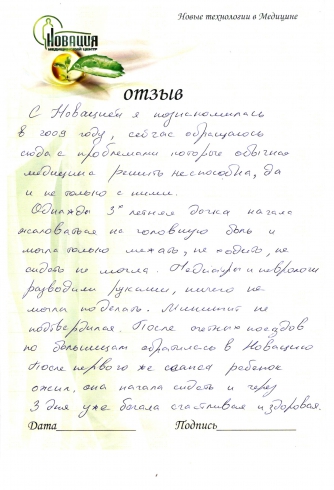 Новые технологии в Медицине
НОВАЦИЯ
МЕДИЦИНСКИЙ ЦЕНТР
ОТЗЫВ
С Новацией я познакомилась
в 2009 году, сейчас обращаюсь
сюда с проблемами которые обычная
медицина решить неспособна, да
и не только с ними.
Однажды 3х летняя дочка начала
жаловаться на головную боль и
могла только лежать, не ходить, не
сидеть не могла. Педиатры и неврологи
разводили руками, ничего не
могли поделать. Менингит не
подтвердился. После поездов
по больницам обратилась в Новацию
После первого же сеанса ребенок
ожил, она начала сидеть и через
3 дня уже бегала счастливая и здоровая.
Дата____________ Подпись______________